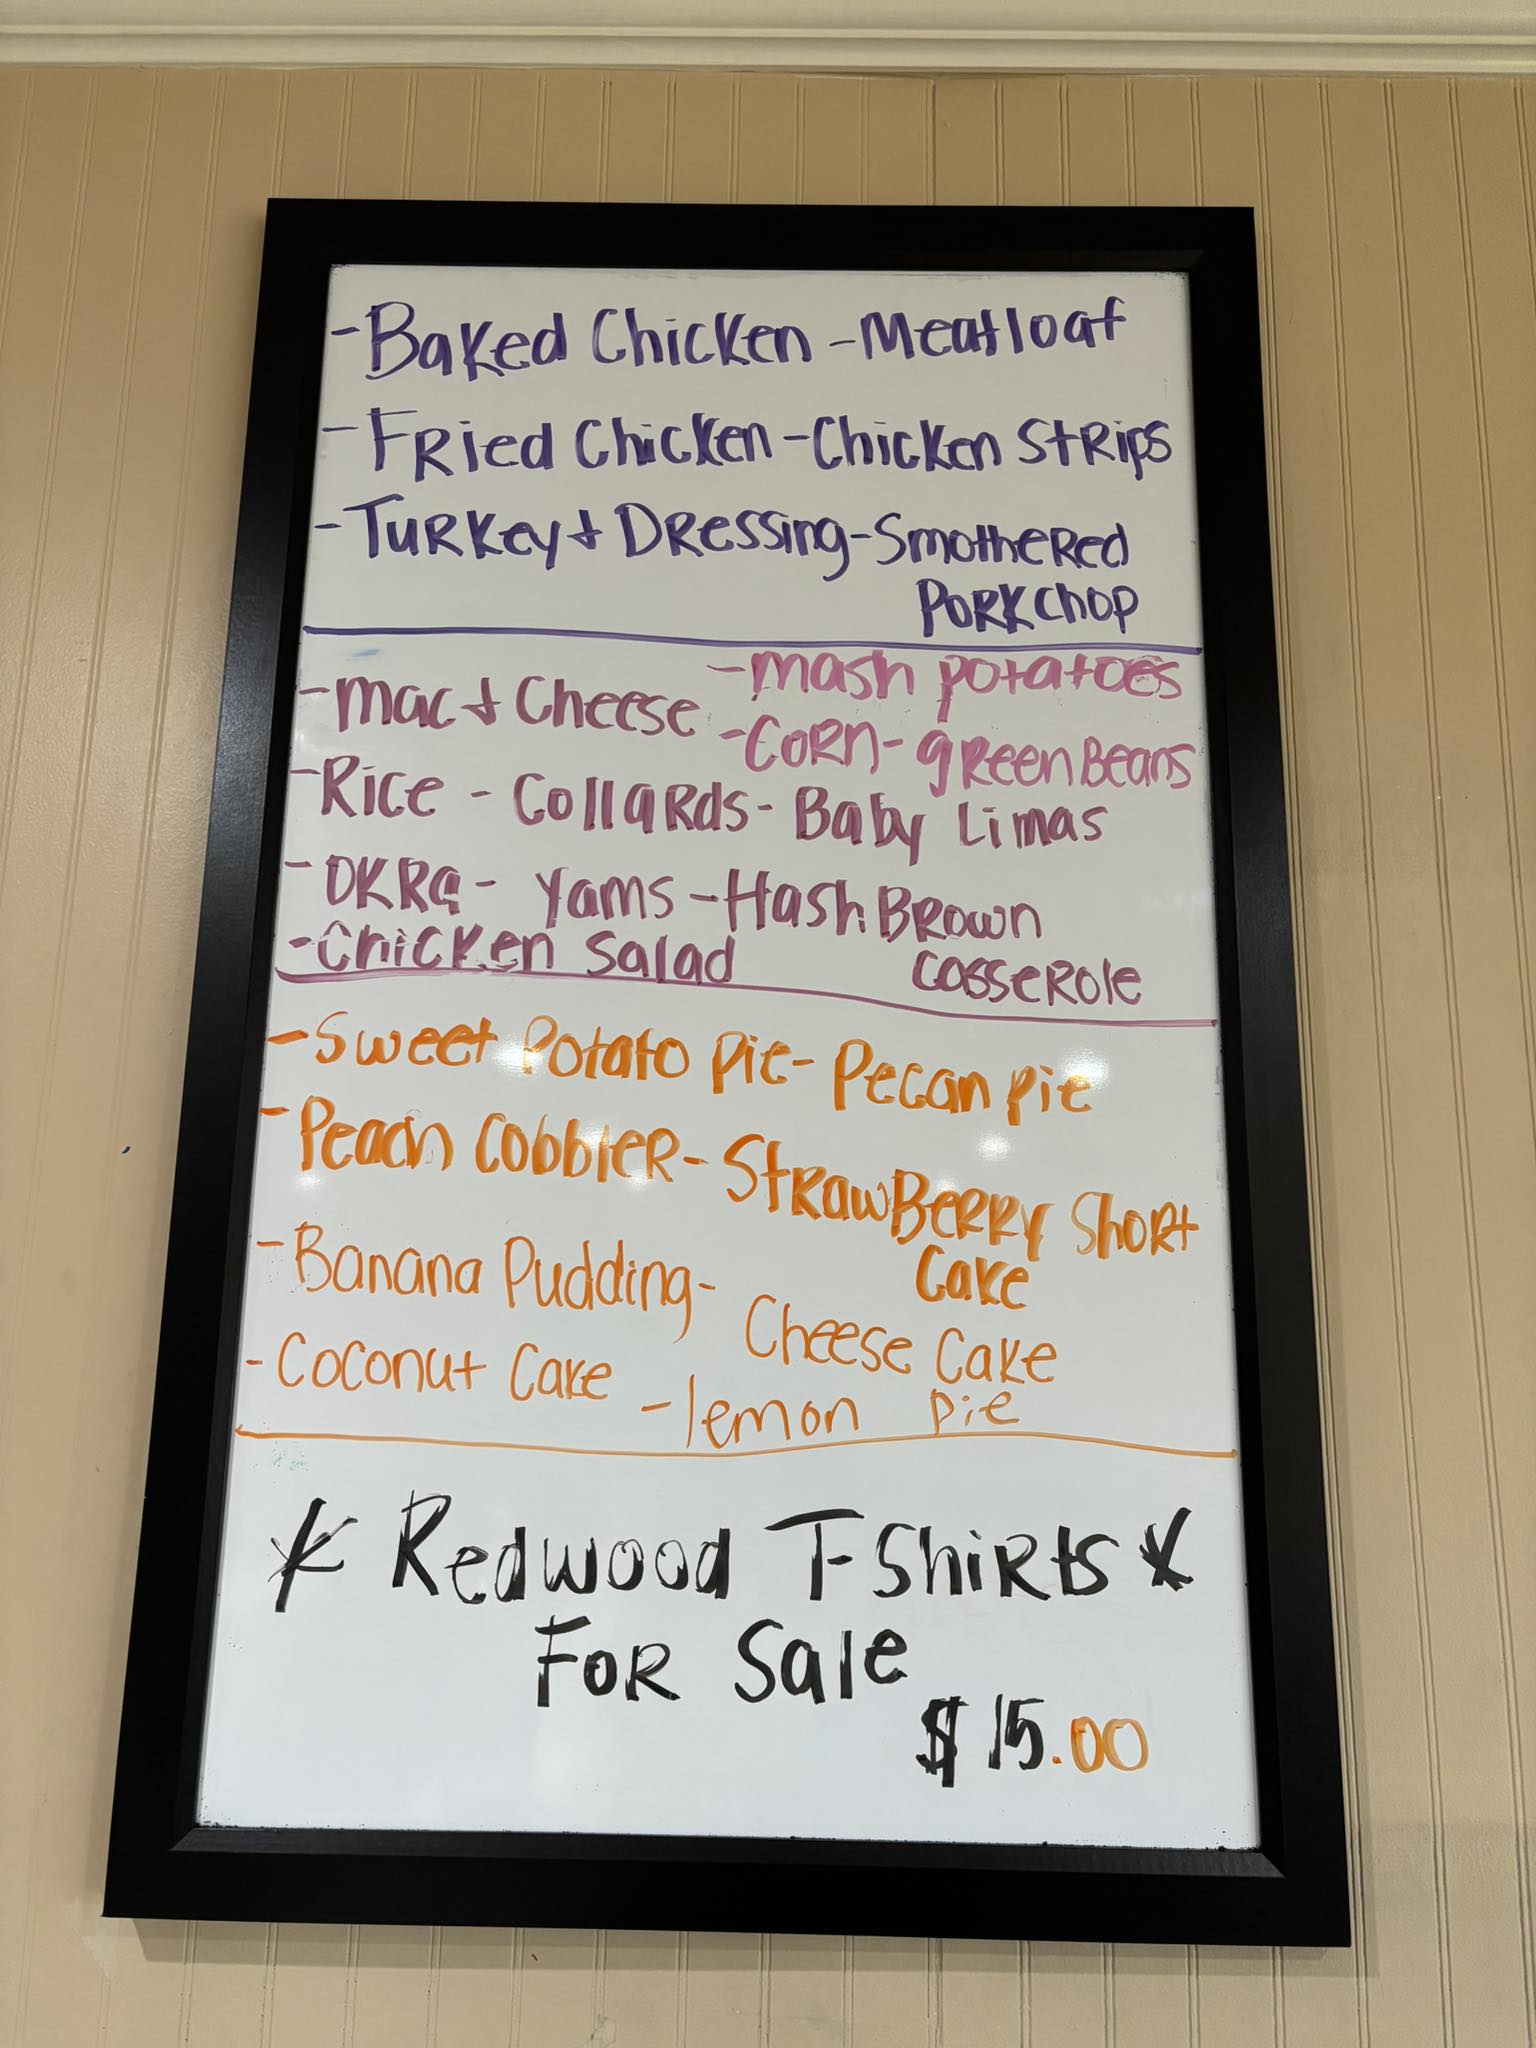 -Baked Chicken -Meatloaf
-Fried Chicken -Chicken Strips
-Turkey + Dressing -Smothered
Porkchop
-Mac + Cheese -mash potatoes
-Corn -green Beans
-Rice - Collards - Baby Limas
-OKRa - Yams -Hash Brown
Casserole
-Chicken Salad
-Sweet Potato Pie -Pecan pie
-Peach Cobbler -Strawberry Short
Cake
-Banana Pudding -Cheese Cake
-Coconut Cake -lemon pie
* Redwood T-Shirts *
For Sale
$15.00